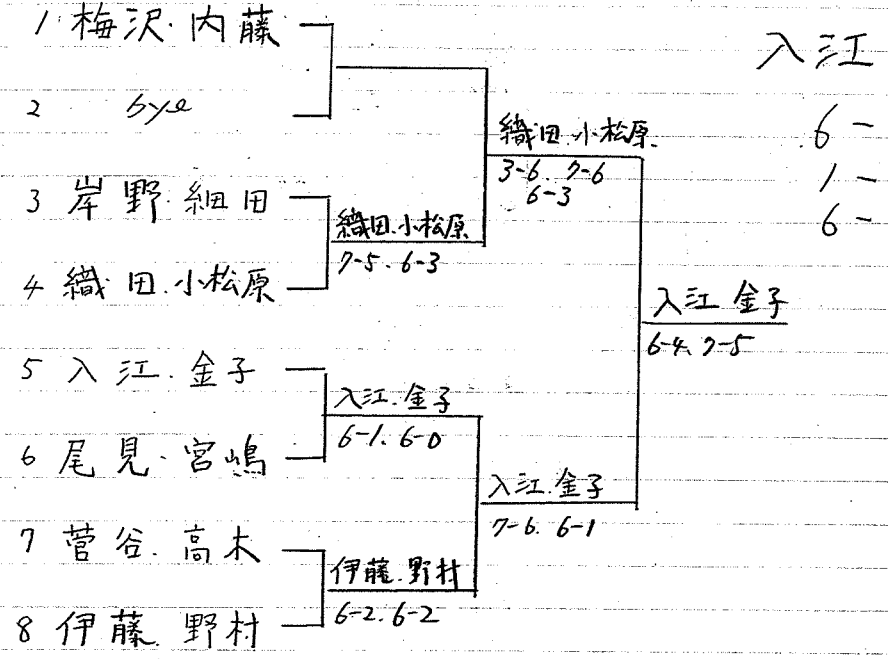 1 梅沢・内藤
2 bye
3 岸野・細田
4 織田・小松原
5 入江・金子
6 尾見・宮嶋
7 菅谷・高木
8 伊藤・野村
織田・小松原
7-5. 6-3
入江・金子
6-1. 6-0
伊藤・野村
6-2. 6-2
織田・小松原
3-6. 7-6
6-3
入江・金子
7-6. 6-1
入江 金子
6-4. 7-5
入江
6-
1-
6-